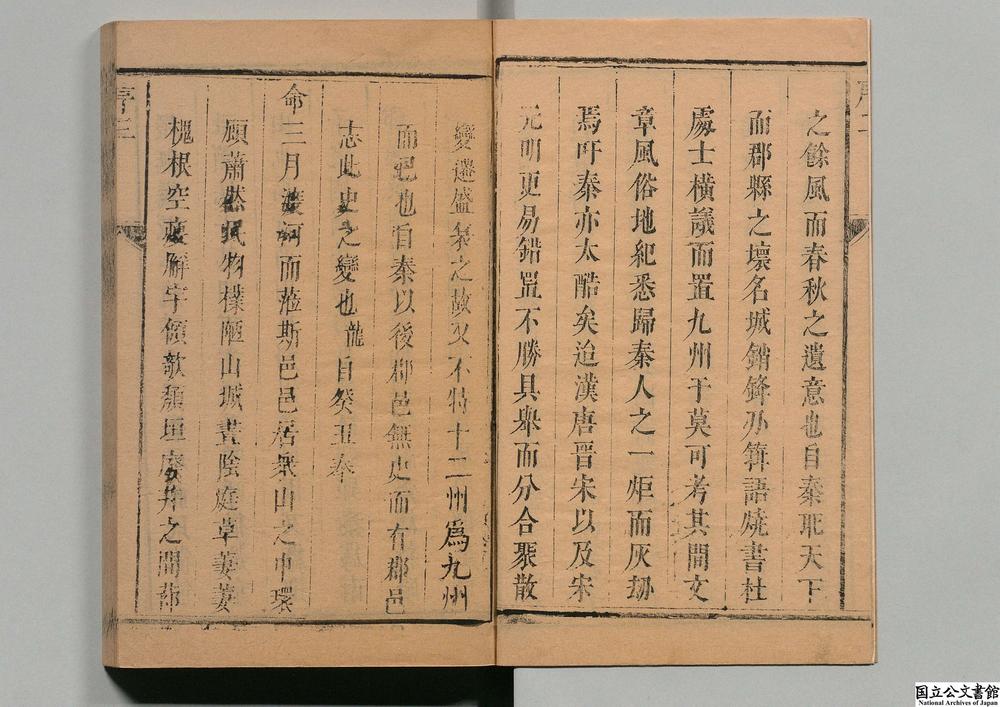 序二
之餘風而春秋之遺意也自秦耴天下
而郡縣之壞名城銷鋒办箝語燒書杜
處士橫議而置九州于莫可考其間文
章風俗地紀悉歸秦人之一炬而灰刼
焉吁秦亦太酷矣迨漢唐晋宋以及宋
元明更易錯置不勝具舉而分合聚散
變遷盛衰之故又不特十二州爲九州
而已也自秦以後郡邑無史而有郡邑
志此史之變也龍自癸丑奉
命三月渡河而蒞斯邑邑居衆山之中環
顧蕭然民物樸陋山城晝陰庭草萋萋
槐根空廨宇傾欹頹垣廢井之間
序三
国立公文書館
National Archives of Japan